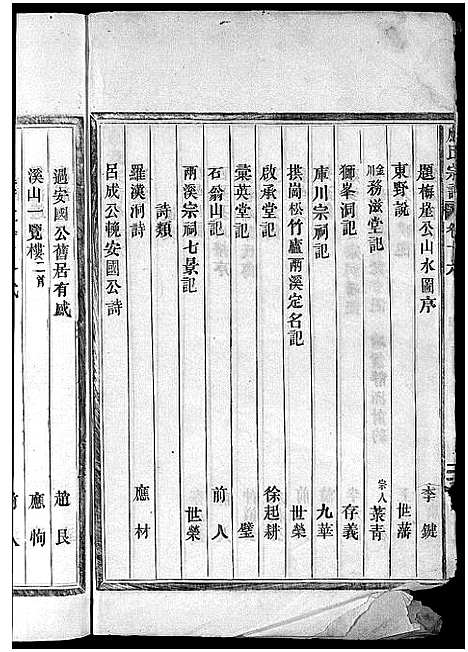 題梅崖公山水圖序 李鍵
東野說 世藩
金川務滋堂記 宗人葉青
獅峯洞記 存義
庫川宗祠記 九華
拱崗松竹廬兩溪定名記 世榮
啟承堂記 徐起耕
彙英堂記 璧
石翁山記 前人
兩溪宗祠七景記 世榮
詩類
羅漢洞詩 應材
呂成公輓安國公詩
過安國公舊居有感 趙民
溪山一覽樓二首 應恂
前人